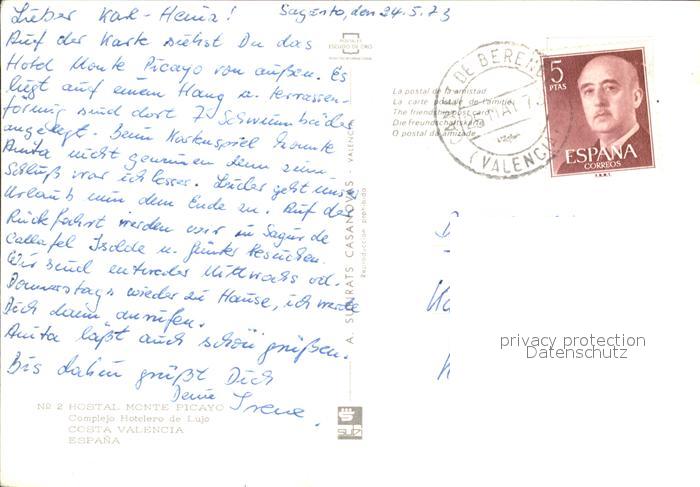 Lieber Karl-Heinz!
Sagunto, den 24.5.73
Auf der Karte siehst Du das
Hotel Monte Picayo von außen. Es
liegt auf einem Hang u. terrassen-
förmig sind dort 7 Schwimmbäder
angelegt. Beim Kartenspiel konnte
Anita nicht gewinnen denn zum
Schluß war ich besser. Leider geht unser
Urlaub nun dem Ende zu. Auf der
Rückfahrt werden wir in Segur de
Calafel Isolde u. Günter besuchen.
Wir sind entweder Mittwochs od.
Donnerstags wieder zu Hause, ich werde
Dich dann anrufen.
Anita läßt auch schön grüßen.
Bis dahin grüßt Dich
Deine Irene.
Nº 2 HOSTAL MONTE PICAYO
Complejo Hotelero de Lujo
COSTA VALENCIA
ESPAÑA
A. SUBIRATS CASANOVAS - VALENCIA
Reproducción prohibida
POSTALES
ESCUDO DE ORO
La postal de la amistad
La carte postale de l'amitié
The friendship post card
Die Freundschaftskarte
O postal da amizade
DE BERENG
MAY 73
(VALENCIA)
5
PTAS
ESPAÑA
CORREOS
F.N.M.T.
privacy protection
Datenschutz